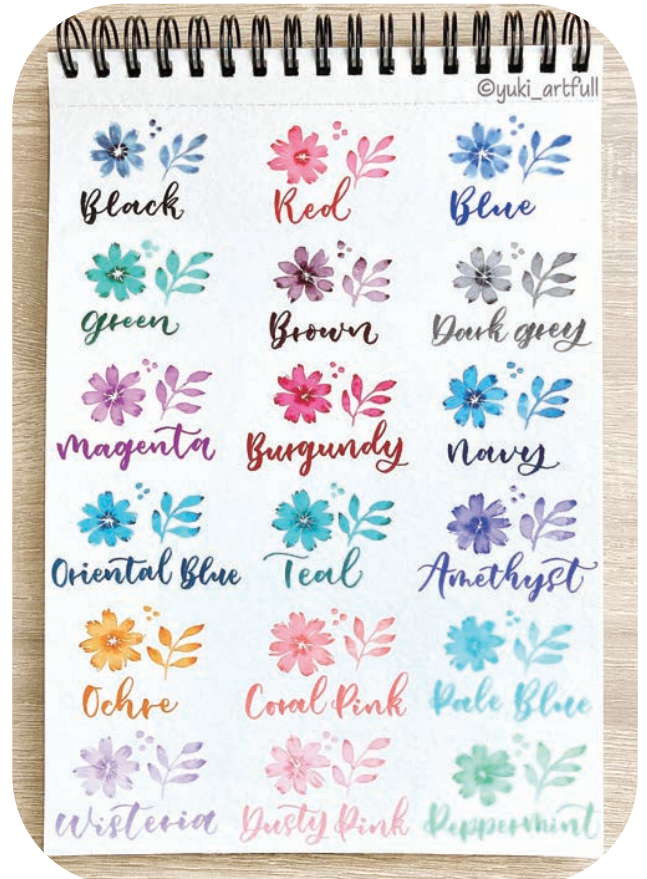 ©yuki_artfull
Black Red Blue
green Brown Dark grey
magenta Burgundy navy
Oriental Blue Teal Amethyst
Ochre Coral Pink Pale Blue
Wisteria Dusty Pink Peppermint